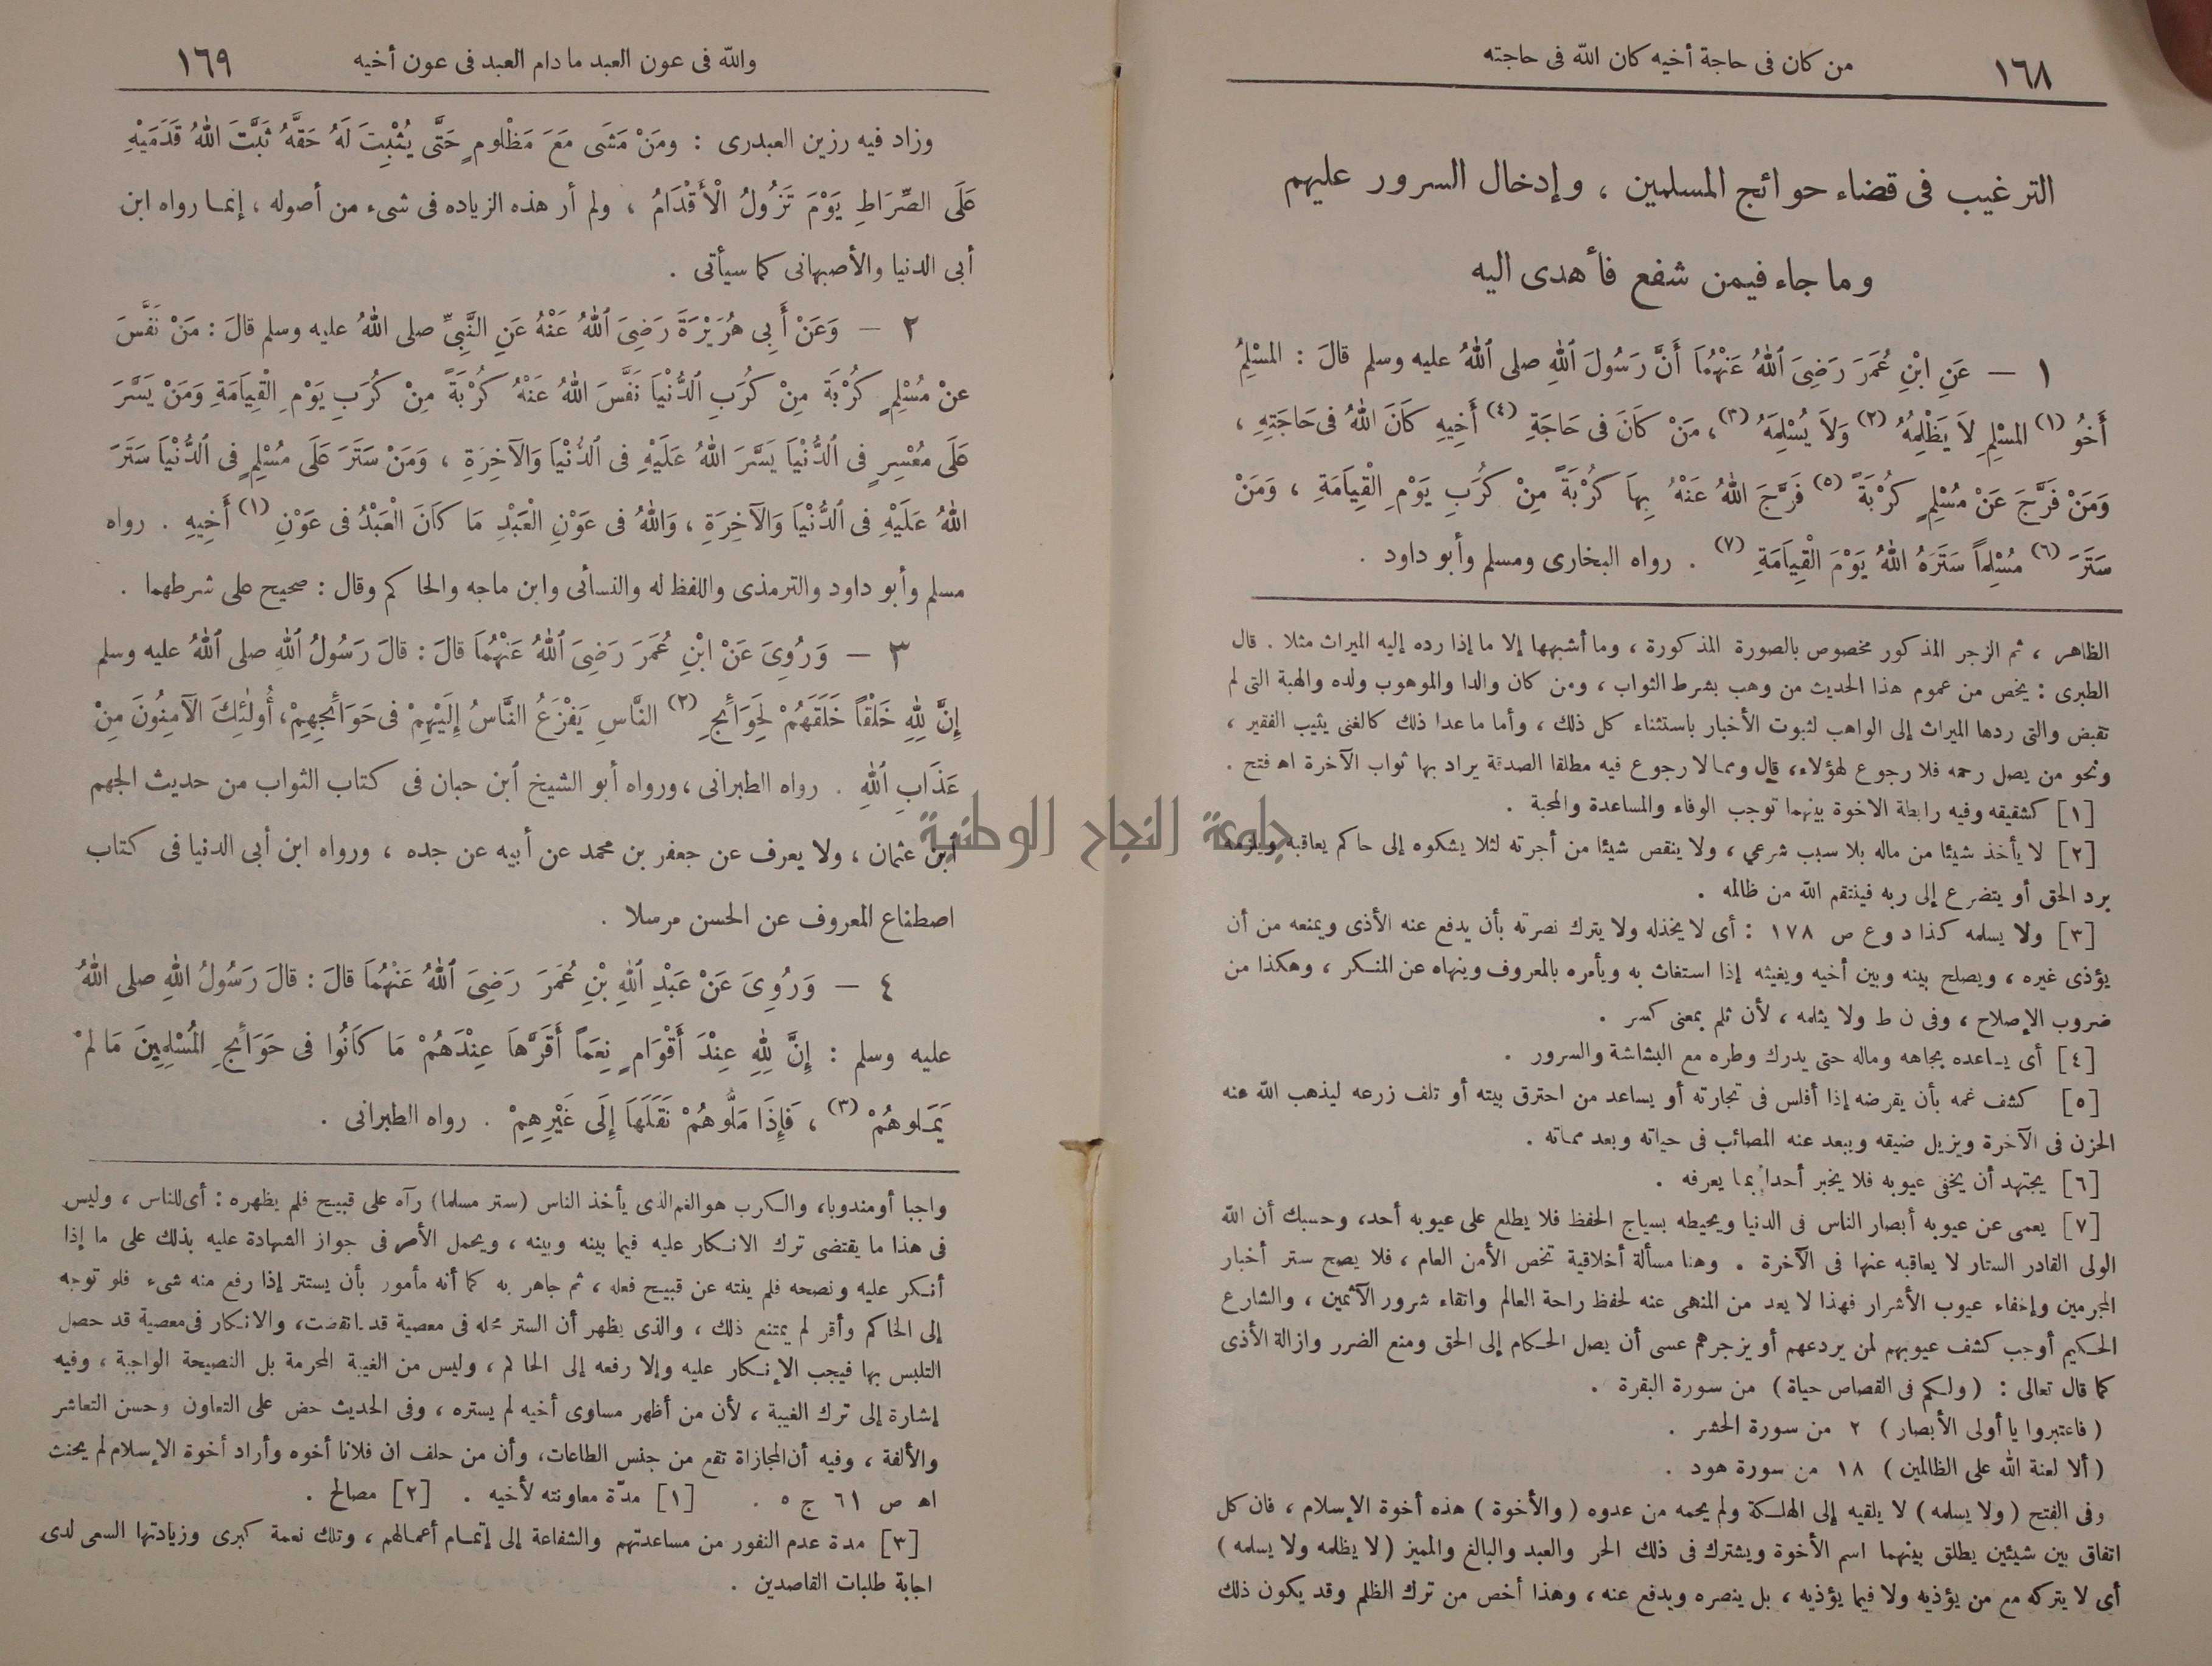 ١٦٨
من كان فى حاجة أخيه كان الله فى حاجته
الترغيب فى قضاء حوائج المسلمين ، وإدخال السرور عليهم
وما جاء فيمن شفع فأهدى اليه
١ — عَنِ ابْنِ عُمَرَ رَضِىَ ٱللهُ عَنْهُمَا أَنَّ رَسُولَ ٱللهِ صلى ٱللهُ عليه وسلم قالَ : المسْلِمُ
أَخُو (١) المسْلِمِ لاَ يَظْلِمُهُ (٢) وَلاَ يُسْلِمَهُ (٣)، مَنْ كَانَ فى حَاجَةِ (٤) أَخِيهِ كَانَ اللهُ فى حَاجَتِهِ ،
وَمَنْ فَرَّجَ عَنْ مُسْلِمٍ كُرْبَةً (٥) فَرَّجَ اللهُ عَنْهُ بِهَا كُرْبَةً مِنْ كُرَبِ يَوْمِ الْقِيَامَةِ ، وَمَنْ
سَتَرَ (٦) مُسْلِماً سَتَرَهُ اللهُ يَوْمَ الْقِيَامَةِ (٧) . رواه البخارى ومسلم وأبو داود .
الظاهر ، ثم الزجر المذكور مخصوص بالصورة المذكورة ، وما أشبهها إلا ما إذا رده إليه الميراث مثلا . قال
الطبرى : يخص من عموم هذا الحديث من وهب بشرط الثواب ، ومن كان والدا والموهوب ولده والهبة التى لم
تقبض والتى ردها الميراث إلى الواهب لثبوت الأخبار باستثناء كل ذلك ، وأما ما عدا ذلك كالغنى يثيب الفقير ،
ونحو من يصل رحمه فلا رجوع لهؤلاء، قال ومما لا رجوع فيه مطلقا الصدقة يراد بها ثواب الآخرة اه فتح .
[١] كشقيقه وفيه رابطة الاخوة بينهما توجب الوفاء والمساعدة والمحبة .
[٢] لا يأخذ شيئا من ماله بلا سبب شرعي ، ولا ينقص شيئا من أجرته لئلا يشكوه إلى حاكم يعاقبه ويلزمه
برد الحق أو يتضرع إلى ربه فينتقم الله من ظالمه .
[٣] ولا يسلمه كذا د و ع ص ١٧٨ : أى لا يخذله ولا يترك نصرته بأن يدفع عنه الأذى ويمنعه من أن
يؤذى غيره ، ويصلح بينه وبين أخيه ويغيثه إذا استغاث به ويأمره بالمعروف وينهاه عن المنكر ، وهكذا من
ضروب الإصلاح ، وفى ن ط ولا يثلمه ، لأن ثلم بمعنى كسر .
[٤] أى يساعده بجاهه وماله حتى يدرك وطره مع البشاشة والسرور .
[٥] كشف غمه بأن يقرضه إذا أفلس فى تجارته أو يساعد من احترق بيته أو تلف زرعه ليذهب الله عنه
الحزن فى الآخرة ويزيل ضيقه ويبعد عنه المصائب فى حياته وبعد مماته .
[٦] يجتهد أن يخفى عيوبه فلا يخبر أحدا بما يعرفه .
[٧] يعمى عن عيوبه أبصار الناس فى الدنيا ويحيطه بسياج الحفظ فلا يطلع على عيوبه أحد، وحسبك أن الله
الولى القادر الستار لا يعاقبه عنها فى الآخرة . وهنا مسألة أخلاقية تخص الأمن العام ، فلا يصح ستر أخبار
المجرمين وإخفاء عيوب الأشرار فهذا لا يعد من المنهى عنه لحفظ راحة العالم واتقاء شرور الآثمين ، والشارع
الحكيم أوجب كشف عيوبهم لمن يردعهم أو يزجرهم عسى أن يصل الحكام إلى الحق ومنع الضرر وازالة الأذى
كما قال تعالى : ( ولكم فى القصاص حياة ) من سورة البقرة .
( فاعتبروا يا أولى الأبصار ) ٢ من سورة الحشر .
( ألا لعنة الله على الظالمين ) ١٨ من سورة هود .
وفى الفتح ( ولا يسلمه ) لا يلقيه إلى الهلكة ولم يحمه من عدوه ( والأخوة ) هذه أخوة الإسلام ، فان كل
اتفاق بين شيئين يطلق بينهما اسم الأخوة ويشترك فى ذلك الحر والعبد والبالغ والمميز ( لا يظلمه ولا يسلمه )
أى لا يتركه مع من يؤذيه ولا فيما يؤذيه ، بل ينصره ويدفع عنه ، وهذا أخص من ترك الظلم وقد يكون ذلك
والله فى عون العبد ما دام العبد فى عون أخيه
١٦٩
وزاد فيه رزين العبدرى : ومَنْ مَشَى مَعَ مَظْلومٍ حَتَّى يُثْبِتَ لَهُ حَقَّهُ ثَبَّتَ اللهُ قَدَمَيْهِ
عَلَى الصِّرَاطِ يَوْمَ تَزُولُ الْأَقْدَامُ ، ولم أر هذه الزياده فى شىء من أصوله ، إنما رواه ابن
أبى الدنيا والأصبهانى كما سيأتى .
٢ — وَعَنْ أَبِى هُرَيْرَةَ رَضِىَ ٱللهُ عَنْهُ عَنِ النَّبِىِّ صلى اللهُ عليه وسلم قالَ : مَنْ نَفَّسَ
عنْ مُسْلِمٍ كُرْبَة مِنْ كُرَبِ ٱلدُّنْيَا نَفَّسَ اللهُ عَنْهُ كُرْبَةً مِنْ كُرَبِ يَوْمِ الْقِيَامَةِ وَمَنْ يَسَّرَ
عَلَى مُعْسِرٍ فى ٱلدُّنْيَا يَسَّرَ اللهُ عَلَيْهِ فى ٱلدُّنْيَا وَالآخِرَةِ ، وَمَنْ سَتَرَ عَلَى مُسْلِمٍ فى ٱلدُّنْيَا سَتَرَ
اللهُ عَلَيْهِ فى ٱلدُّنْيَا وَالآخِرَةِ ، وَاللهُ فى عَوْنِ الْعَبْدِ مَا كَانَ الْعَبْدُ فى عَوْنِ (١) أَخِيهِ . رواه
مسلم وأبو داود والترمذى واللفظ له والنسائى وابن ماجه والحاكم وقال : صحيح على شرطهما .
٣ — وَرُوِىَ عَنْ ابْنِ عُمَرَ رَضِىَ ٱللهُ عَنْهُمَا قالَ : قالَ رَسُولُ ٱللهِ صلى ٱللهُ عليه وسلم
إِنَّ لِلهِ خَلْقاً خَلَقَهُمْ لِحَوَائجِ (٢) النَّاسِ يَفْزَعُ النَّاسُ إِلَيْهِمْ فى حَوَائجِهِمْ، أُولٰئِكَ الآمِنُونَ مِنْ
عَذَابِ ٱللهِ . رواه الطبرانى ، ورواه أبو الشيخ ٱبن حبان فى كتاب الثواب من حديث الجهم
جامعة النجاح الوطنية
ٱبن عثمان ، ولا يعرف عن جعفر بن محمد عن أبيه عن جده ، ورواه ابن أبى الدنيا فى كتاب
اصطناع المعروف عن الحسن مرسلا .
٤ — وَرُوِىَ عَنْ عَبْدِ ٱللهِ بْنِ عُمَرَ رَضِىَ ٱللهُ عَنْهُمَا قالَ : قالَ رَسُولُ اللهِ صلى اللهُ
عليه وسلم : إِنَّ لِلهِ عِنْدَ أَقْوَامٍ نِعَماً أَقَرَّهَا عِنْدَهُمْ مَا كَانُوا فى حَوَائجِ المُسْلِمِينَ مَا لَمْ
يَمَلوهُمْ (٣) ، فَإِذَا مَلُّوهُمْ نَقَلَهَا إِلَى غَيْرِهِمْ . رواه الطبرانى .
واجبا أو مندوبا، والكرب هو الغم الذى يأخذ الناس (ستر مسلما) رآه على قبيح فلم يظهره : أى للناس ، وليس
فى هذا ما يقتضى ترك الانكار عليه فيما بينه وبينه ، ويحمل الأمر فى جواز الشهادة عليه بذلك على ما إذا
أنكر عليه ونصحه فلم ينته عن قبيح فعله ، ثم جاهر به كما أنه مأمور بأن يستتر إذا رفع منه شىء فلو توجه
إلى الحاكم وأقر لم يمتنع ذلك ، والذى يظهر أن الستر محله فى معصية قد انقضت، والانكار فى معصية قد حصل
التلبس بها فيجب الإنكار عليه وإلا رفعه إلى الحاكم ، وليس من الغيبة المحرمة بل النصيحة الواجبة ، وفيه
إشارة إلى ترك الغيبة ، لأن من أظهر مساوى أخيه لم يستره ، وفى الحديث حض على التعاون وحسن التعاشر
والألفة ، وفيه أن المجازاة تقع من جنس الطاعات، وأن من حلف ان فلانا أخوه وأراد أخوة الإسلام لم يحنث
اه ص ٦١ ج ٥ . [١] مدّة معاونته لأخيه . [٢] مصالح .
[٣] مدة عدم النفور من مساعدتهم والشفاعة إلى إتمام أعمالهم ، وتلك نعمة كبرى وزيادتها السعى لدى
اجابة طلبات القاصدين .